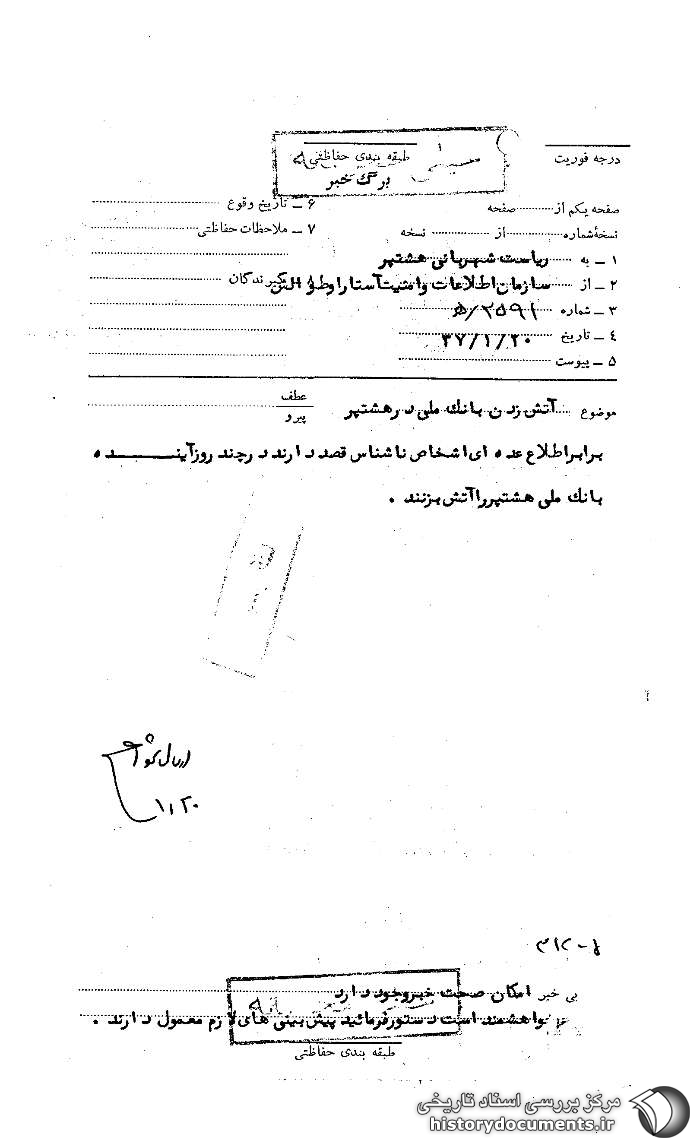 درجه فوریت
طبقه بندی حفاظتی
برگ خبر
صفحه یکم از صفحه
نسخه شماره از نسخه
۱ ـ به ریاست شهربانی هشتپر
۲ ـ از سازمان اطلاعات وامنیت آستارا وطوالش
۳ ـ شماره ۵/۲۵۹۱
۴ ـ تاریخ ۳۷/۱/۲۰
۵ ـ پیوست
۶ ـ تاریخ وقوع
۷ ـ ملاحظات حفاظتی
۸ ـ گیرندگان
موضوع آتش زدن بانک ملی در هشتپر
عطف
پیرو
برابر اطلاع عده ای اشخاص ناشناس قصد دارند در چند روز آینــــده
بانک ملی هشتپر را آتش بزنند .
۱/۲۰
۳۱۲-۵
بی خبر امکان صحت خبر وجود دارد
خواهشمند است دستور فرمائید پیش بینی های لازم معمول دارند .
طبقه بندی حفاظتی
مرکز بررسی اسناد تاریخی
historydocuments.ir